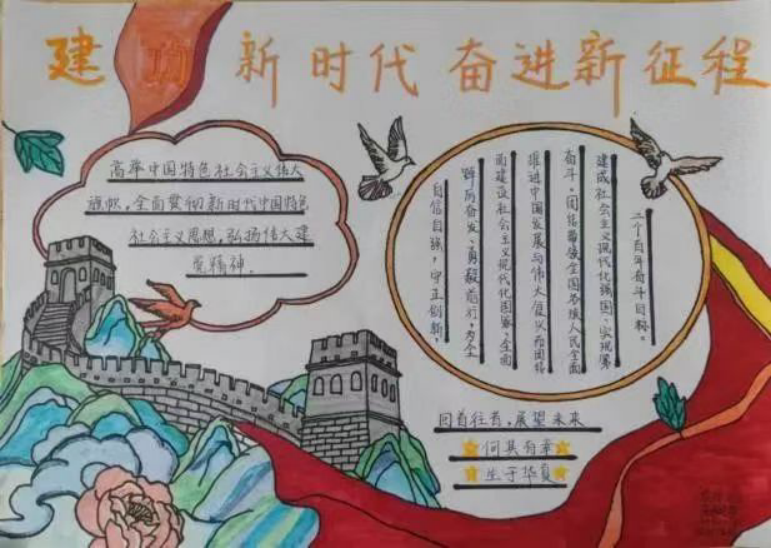 建功新时代 奋进新征程
高举中国特色社会主义伟大
旗帜，全面贯彻新时代中国特色
社会主义思想，弘扬伟大建
党精神．
自信自强，守正创新，
踔厉奋发、勇毅前行，为全
面建设社会主义现代化国家、全面
推进中国发展与伟大复兴而团结
奋斗，团结带领全国各族人民全面
建成社会主义现代化强国、实现第
二个百年奋斗目标。
回首往昔，展望未来
何其有幸
生于华夏